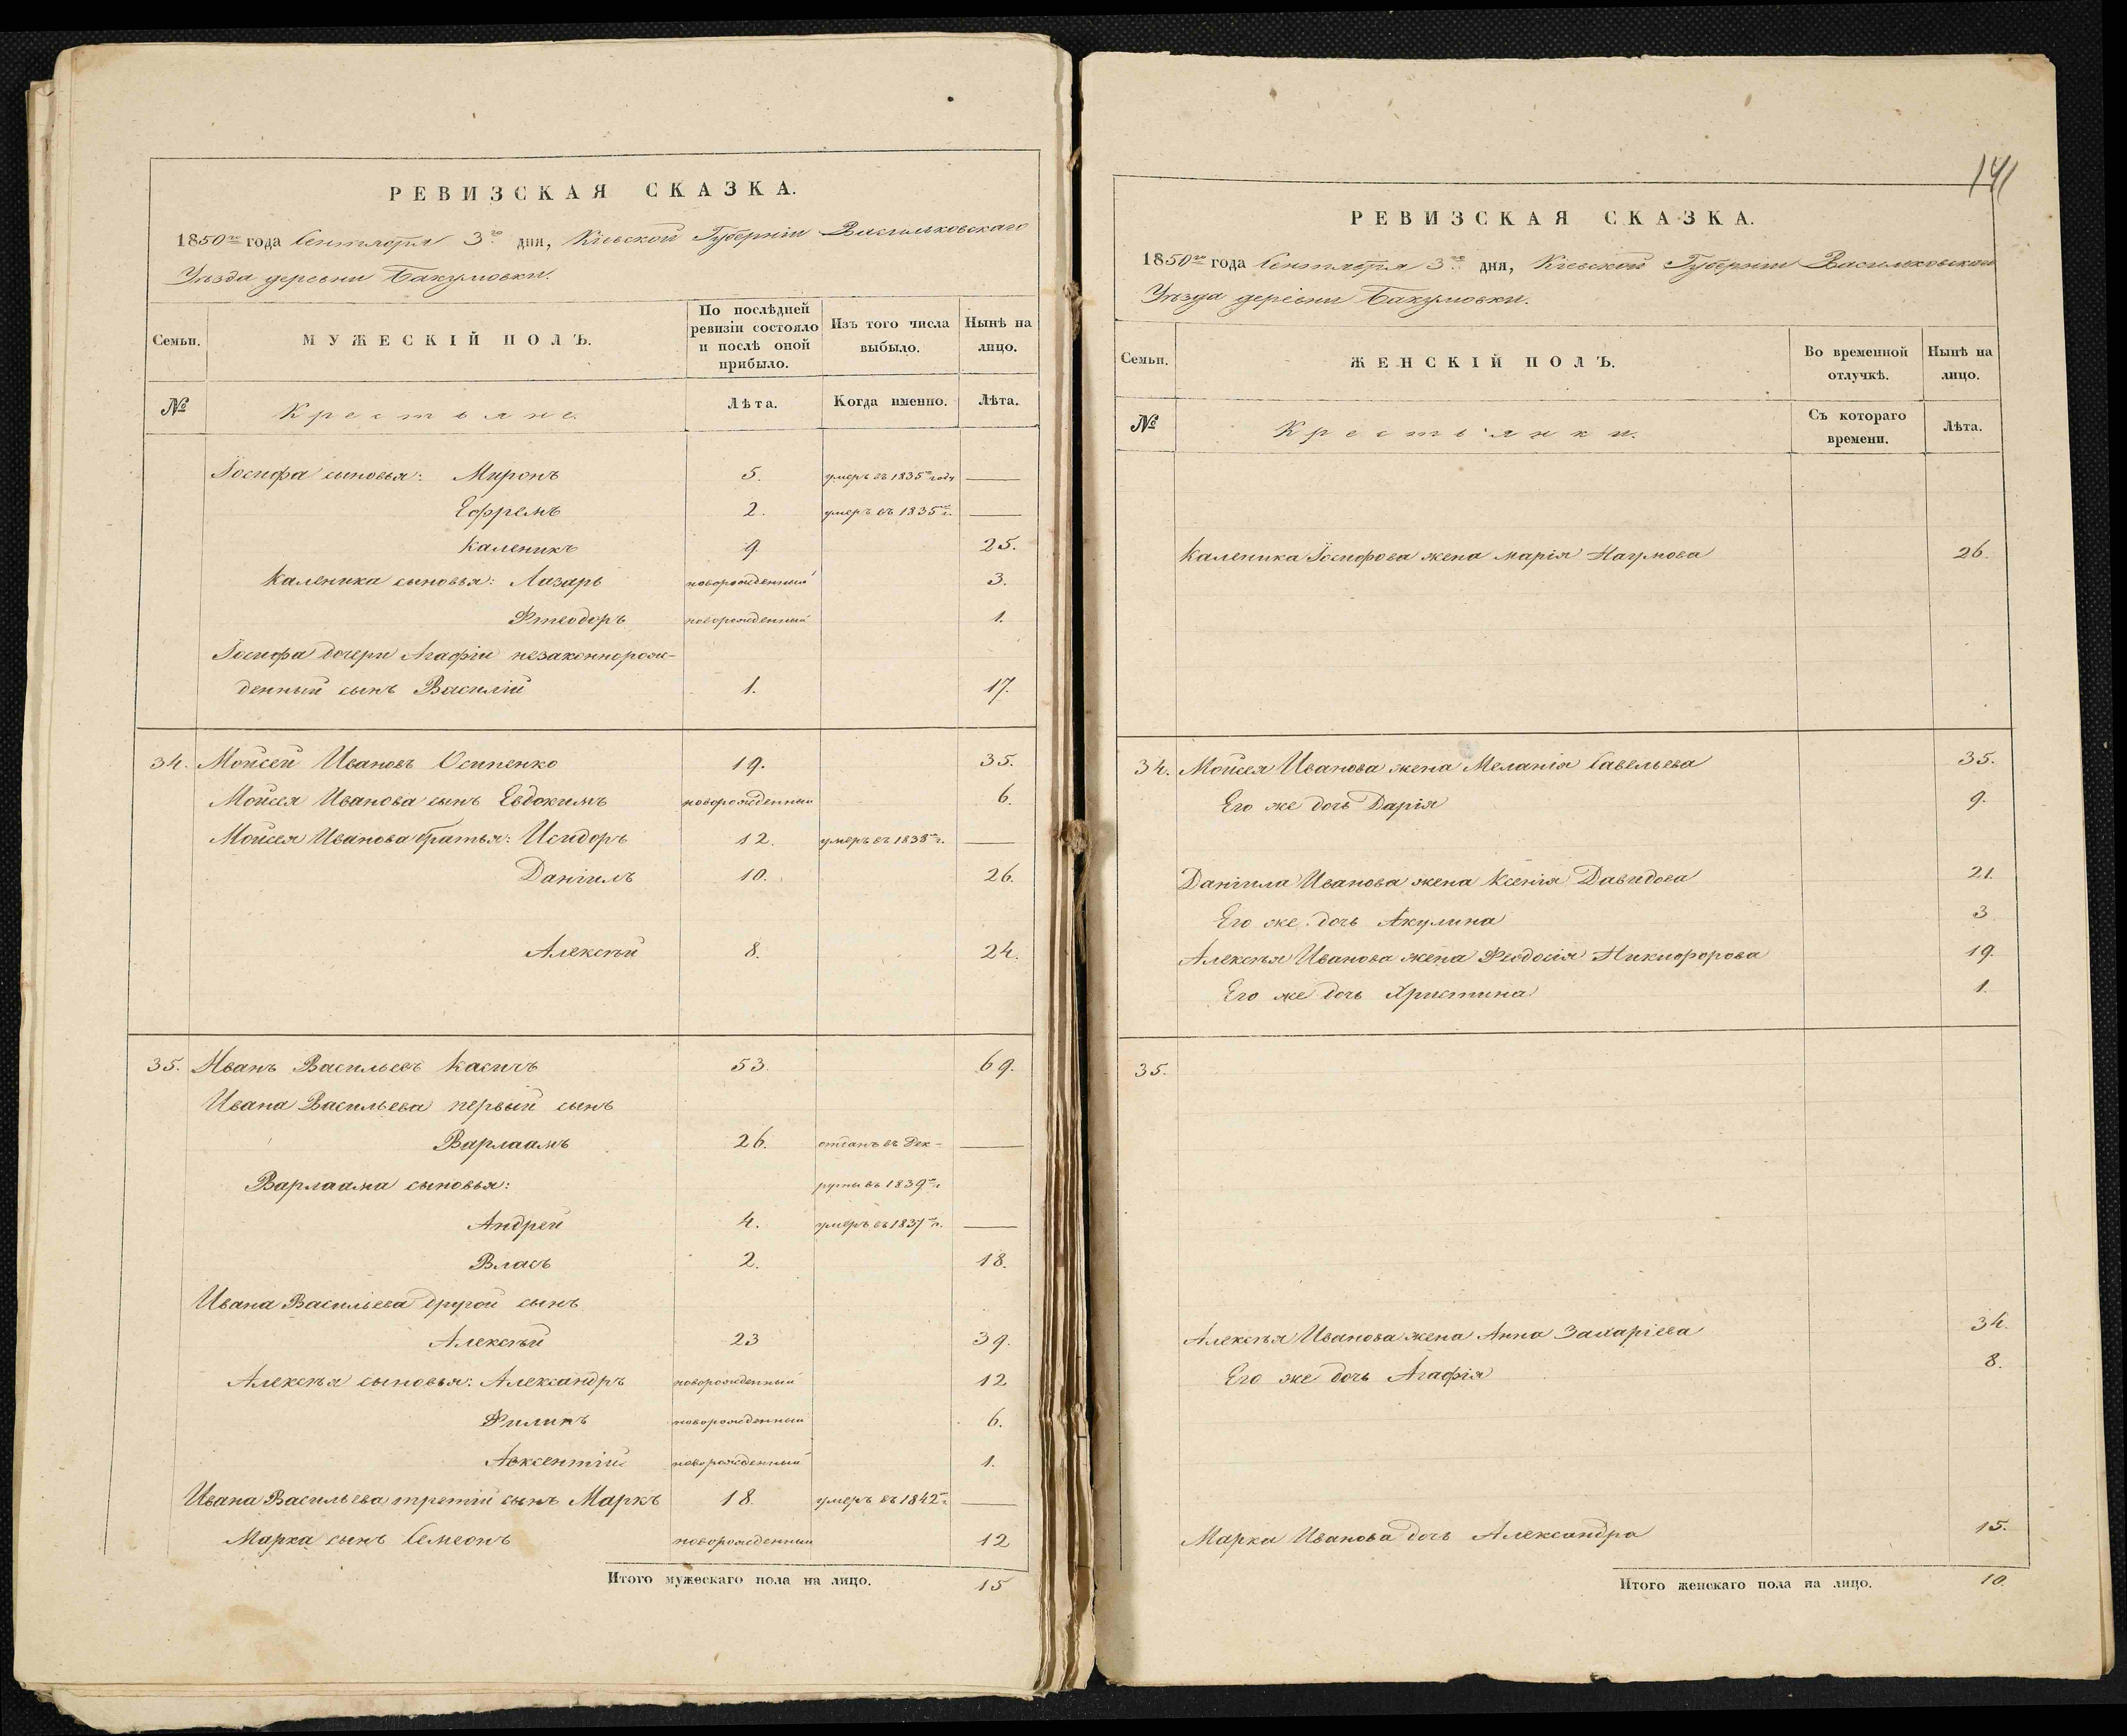 РЕВИЗСКАЯ СКАЗКА.
1850го года Сентября 3го дня, Кіевской Губерніи Васильковскаго
Уѣзда деревни Бакумовки.
Семьи.
МУЖЕСКІЙ ПОЛЪ.
По послѣдней ревизіи состояло и послѣ оной прибыло.
Изъ того числа выбыло.
Нынѣ на лицо.
№
Крестьяне.
Лѣта.
Когда именно.
Лѣта.
Іосифа сыновья: Миронъ 5. умеръ въ 1835мъ году —
Ефремъ 2. умеръ въ 1835мъ г. —
Каленикъ 9 25.
Каленика сыновья: Лазарь новорожденный 3.
Ѳтеодоръ новорожденный 1.
Іосифа дочери Агафіи незаконнорож-
денный сынъ Василій 1. 17.
34. Мойсей Ивановъ Осипенко 19. 35.
Мойсея Иванова сынъ Евдокимъ новорожденный 6.
Мойсея Иванова братья: Исидоръ 12. умеръ въ 1838мъ г. —
Даніилъ 10. 26.
Алексѣй 8. 24.
35. Иванъ Васильевъ Касичъ 53. 69.
Ивана Васильева первый сынъ
Варлаамъ 26. отданъ въ Рек- —
Варлаама сыновья: руты въ 1839мъ г.
Андрей 4. умеръ въ 1837мъ г. —
Власъ 2. 18.
Ивана Васильева другой сынъ
Алексѣй 23 39.
Алексѣя сыновья: Александръ новорожденный 12
Филипъ новорожденный 6.
Авксентій новорожденный 1.
Ивана Васильева третій сынъ Маркъ 18. умеръ въ 1842мъ г. —
Марка сынъ Семеонъ новорожденный 12
Итого мужескаго пола на лицо. 15
141
РЕВИЗСКАЯ СКАЗКА.
1850го года Сентября 3го дня, Кіевской Губерніи Васильковскаго
Уѣзда деревни Бакумовки.
Семьи.
ЖЕНСКІЙ ПОЛЪ.
Во временной отлучкѣ.
Нынѣ на лицо.
№
Крестьянки.
Съ котораго времени.
Лѣта.
Каленика Іосифова жена Марія Наумова 26.
34. Мойсея Иванова жена Меланія Савельева 35.
Его же дочь Дарія 9.
Даніила Иванова жена Ксенія Давидова 21.
Его же дочь Акулина 3
Алексѣя Иванова жена Феодосія Никифорова 19.
Его же дочь Христина 1.
35.
Алексѣя Иванова жена Анна Захаріева 34.
Его же дочь Агафія 8.
Марка Иванова дочь Александра 15.
Итого женскаго пола на лицо. 10.